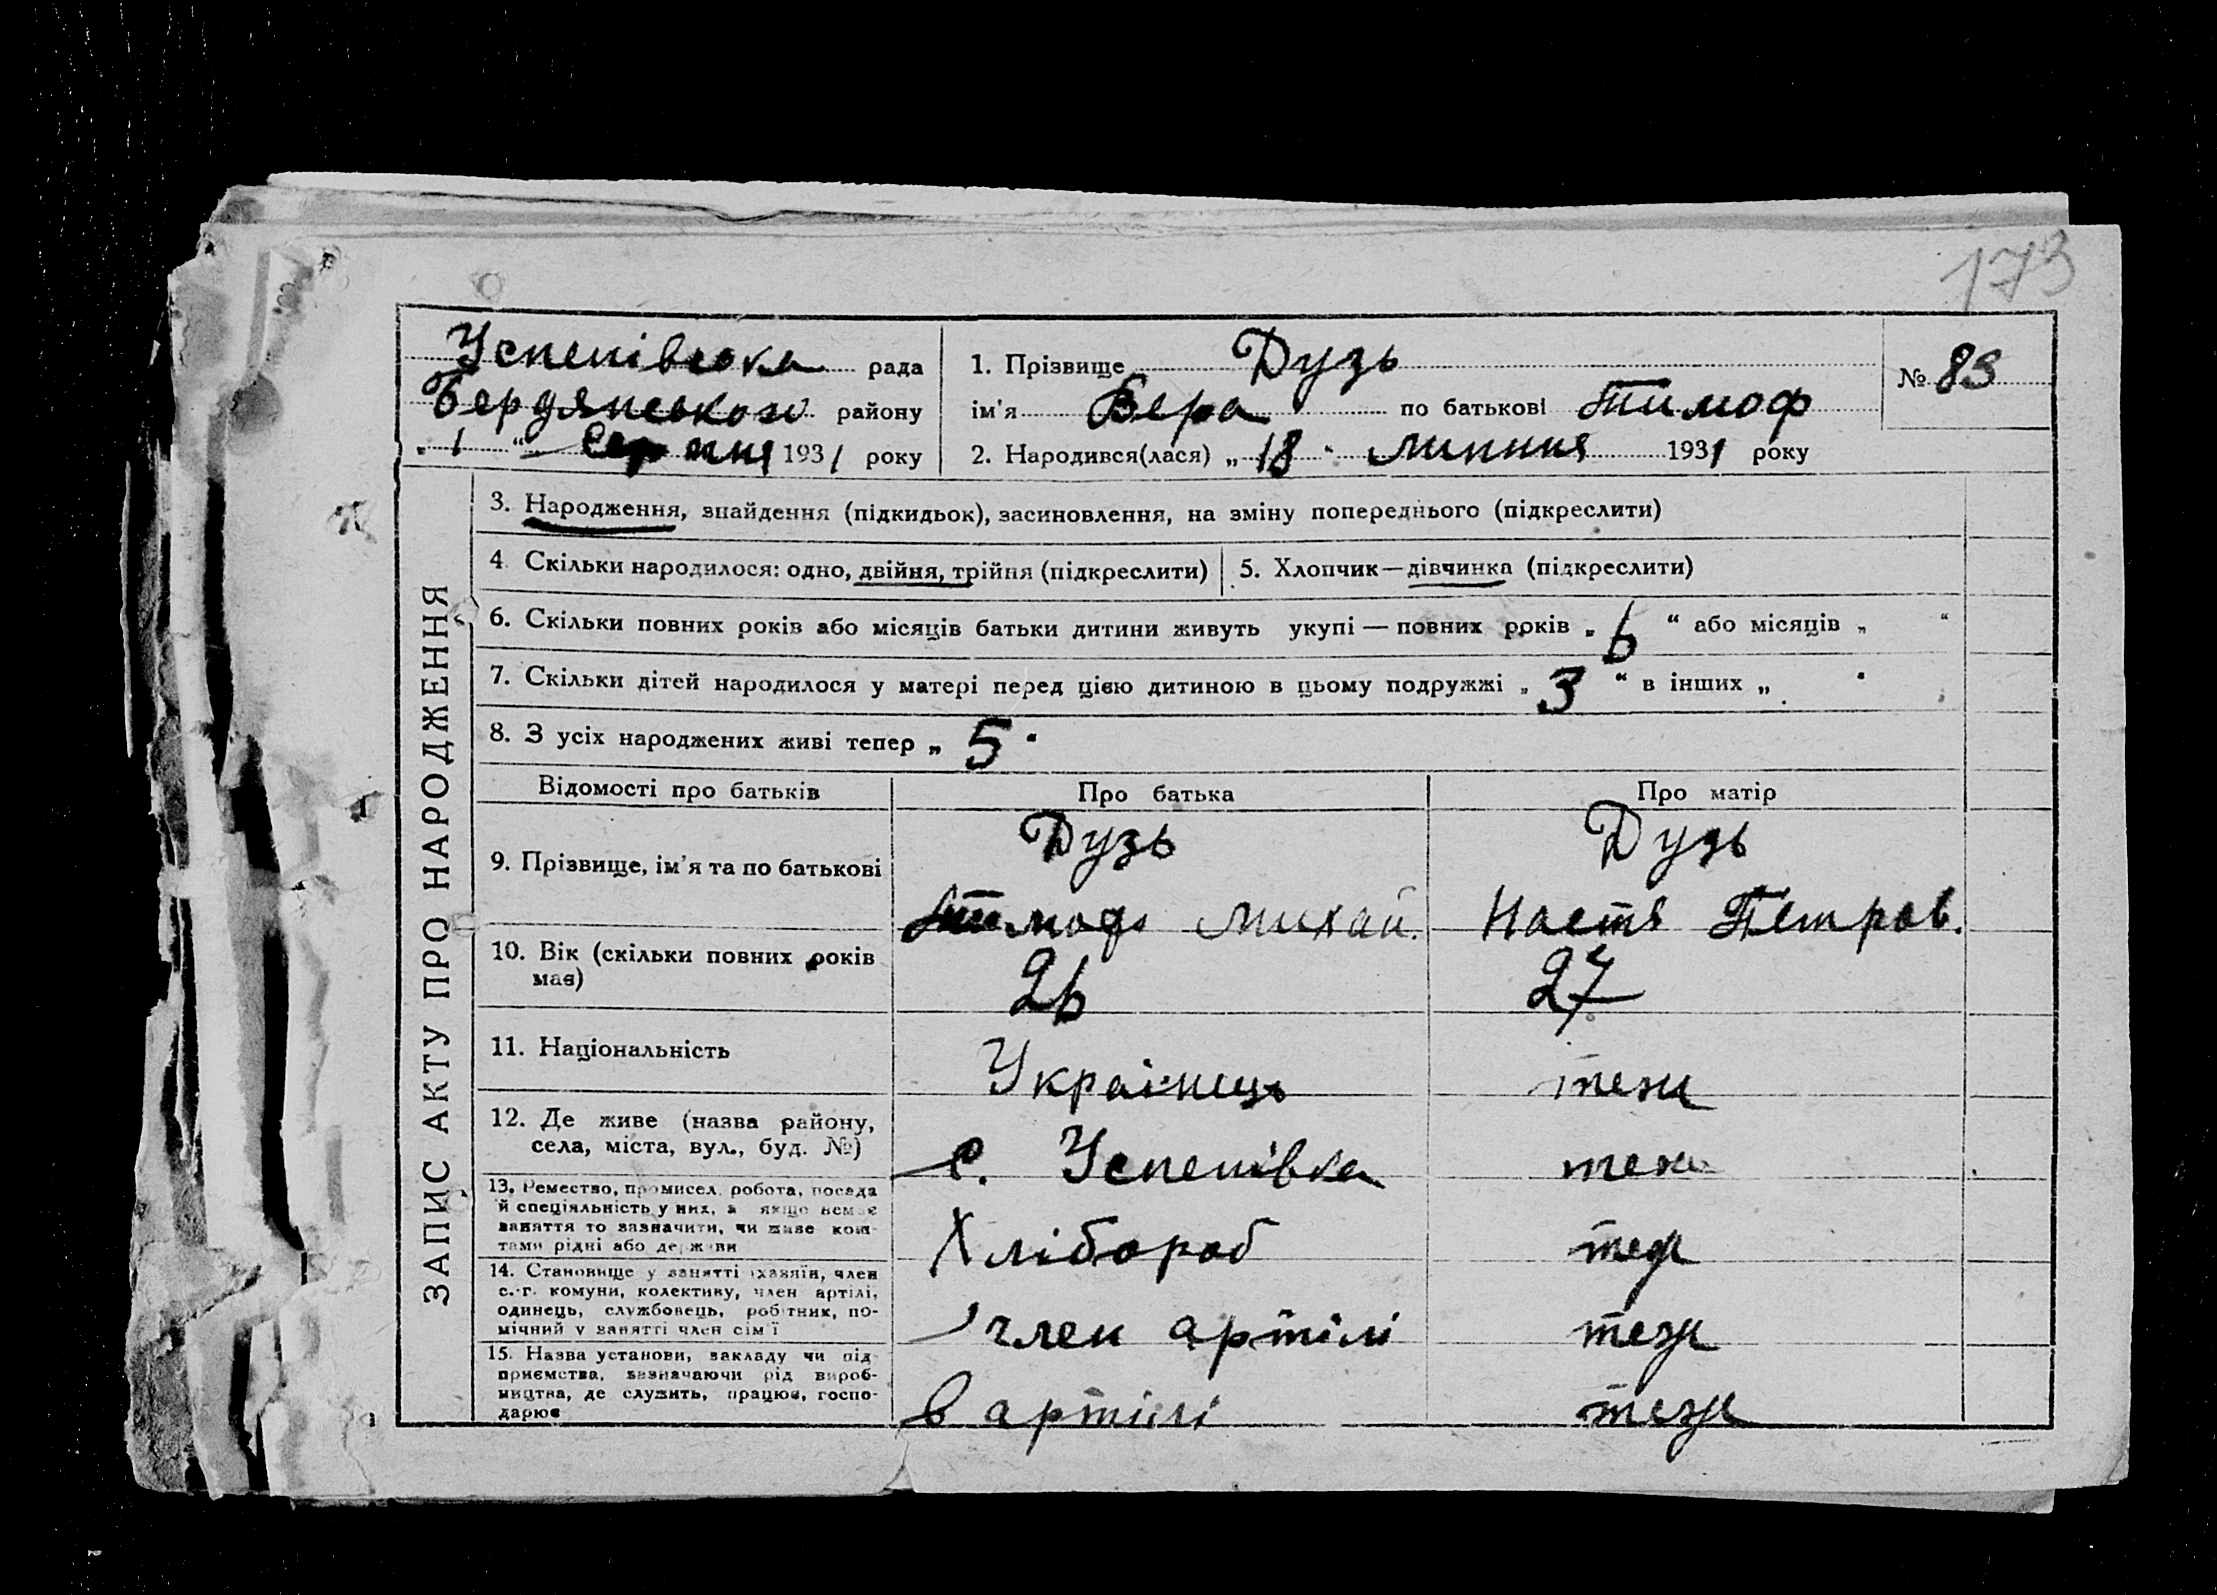 173
Успенівська рада
Бердянського району
„ 1 “ Серпня 1931 року
1. Прізвище Дузь
ім'я Вера по батькові Тимоф
2. Народився(лася) „ 18 “ липння 1931 року
№ 83
ЗАПИС АКТУ ПРО НАРОДЖЕННЯ
3. Народження, знайдення (підкидьок), засиновлення, на зміну попереднього (підкреслити)
4. Скільки народилося: одно, двійня, трійня (підкреслити)
5. Хлопчик—дівчинка (підкреслити)
6. Скільки повних років або місяців батьки дитини живуть укупі — повних років „ 6 “ або місяців „ “
7. Скільки дітей народилося у матері перед цією дитиною в цьому подружжі „ 3 “ в інших „ “
8. З усіх народжених живі тепер „ 5 “
Відомості про батьків
Про батька
Про матір
9. Прізвище, ім'я та по батькові
Дузь
Тимоф Михай.
Дузь
Настя Петров.
10. Вік (скільки повних років
має)
26
27
11. Національність
Українець
теж
12. Де живе (назва району,
села, міста, вул., буд. №)
с. Успенівка
теж
13. Ремество, промисел, робота, посада
й спеціяльність у них, а якщо немає
заняття то зазначити, чи живе кош-
тами рідні або держави
Хлібороб
теж
14. Становище у занятті (хазяїн, член
с.-г. комуни, колективу, член артілі,
одинець, службовець, робітник, по-
мічний у занятті член сім'ї
член артілі
теж
15. Назва установи, закладу чи під-
приємства, зазначаючи рід вироб-
ництва, де служить, працює, госпо-
дарює
в артілі
теж